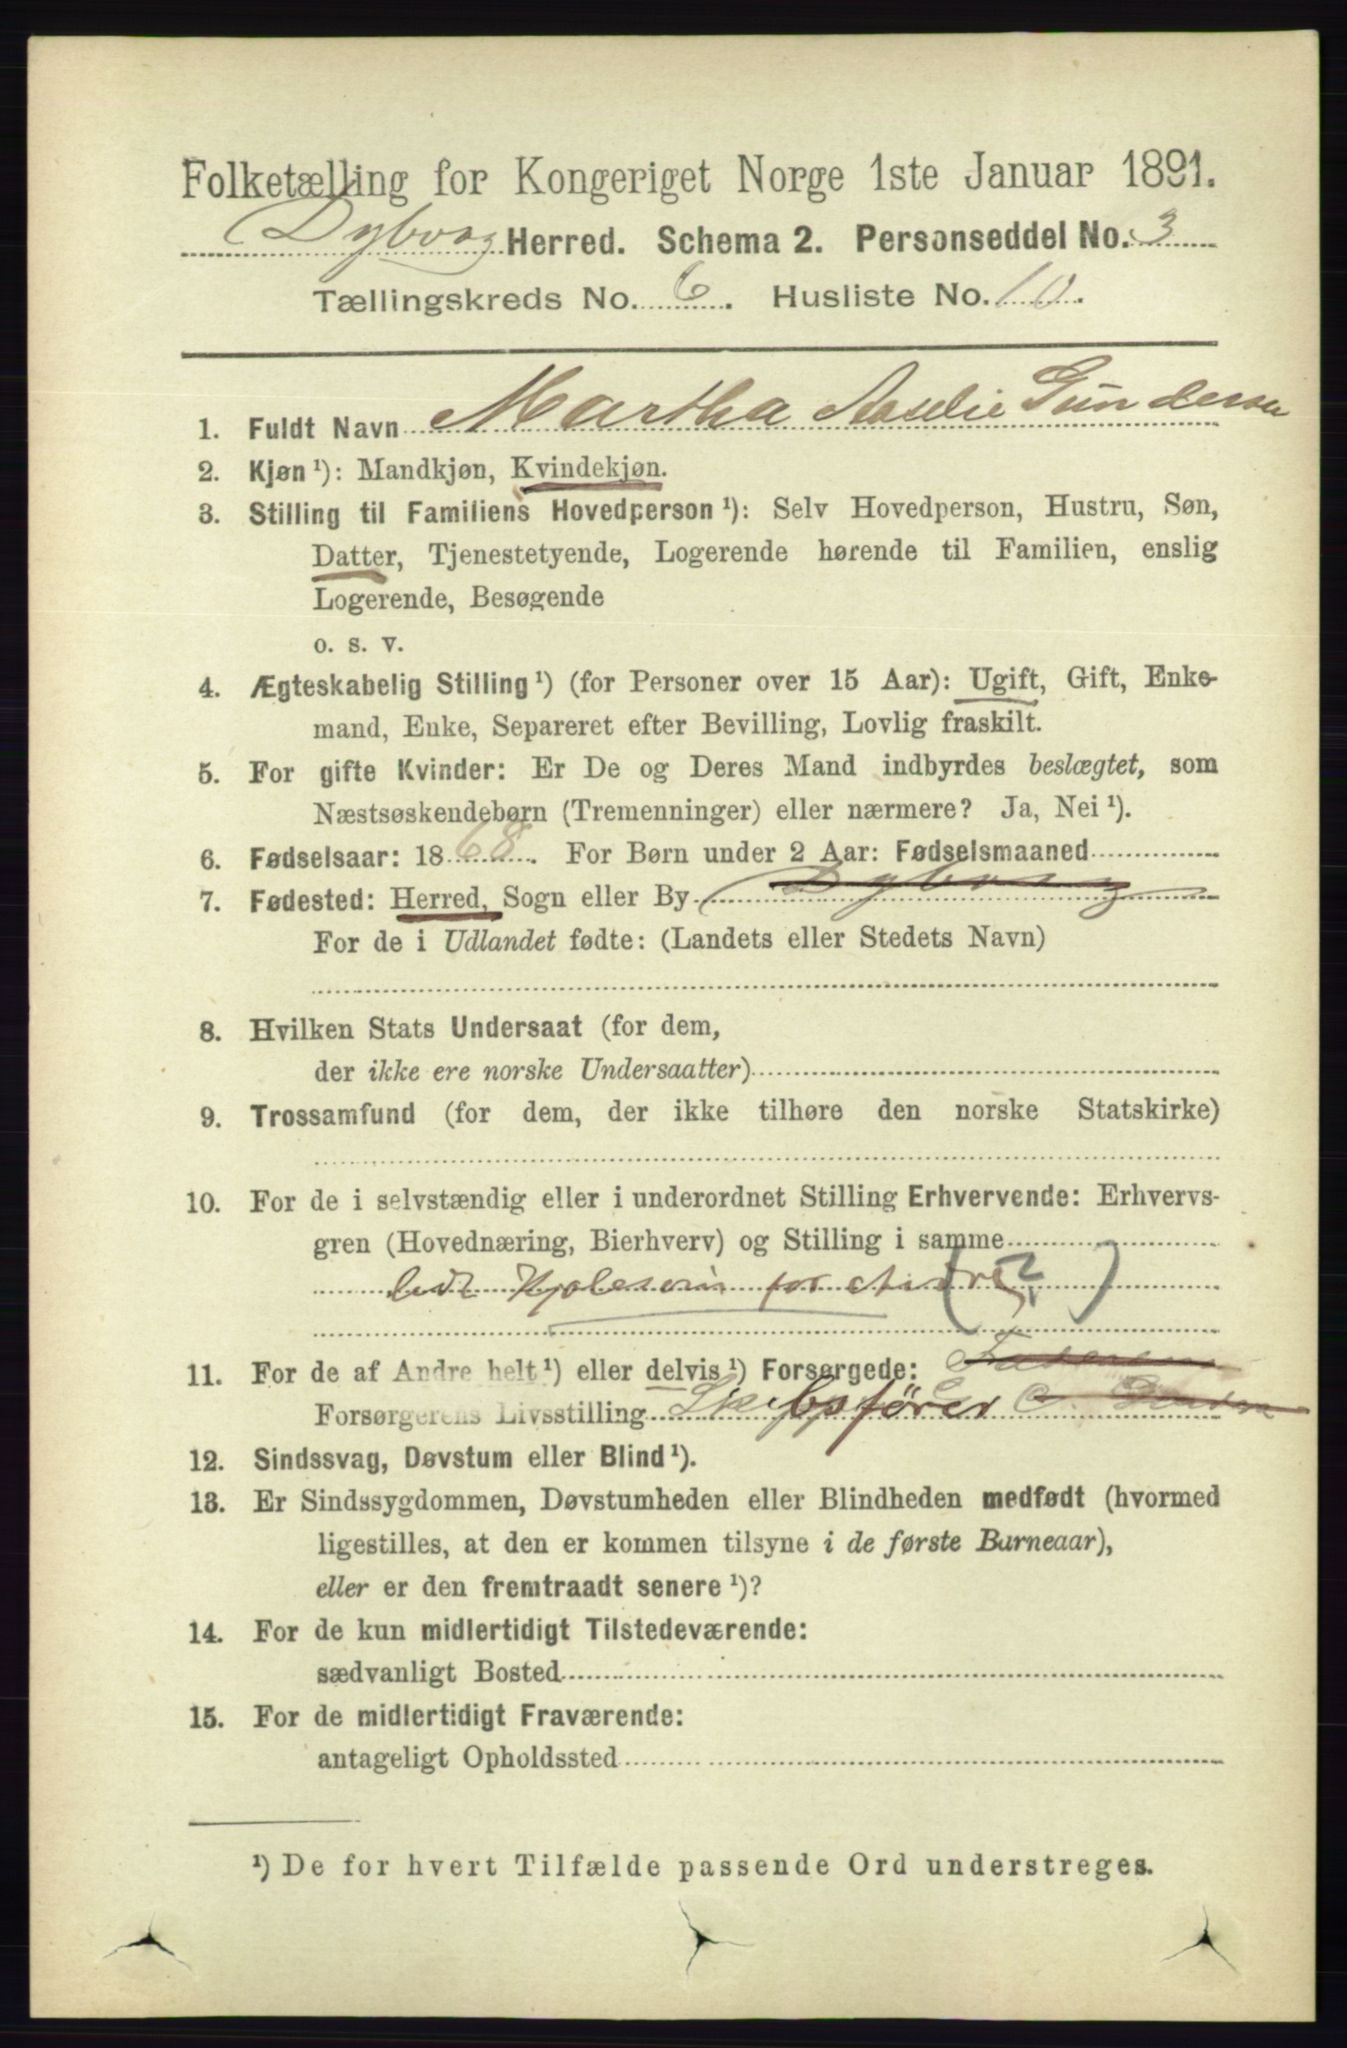 Folketælling for Kongeriget Norge 1ste Januar 1891.
Dybvag Herred. Schema 2. Personseddel No. 3
Tællingskreds No. 6. Husliste No. 10.
1. Fuldt Navn Martha Gundersen
2. Kjøn ¹): Mandkjøn, Kvindekjøn.
3. Stilling til Familiens Hovedperson ¹): Selv Hovedperson, Hustru, Søn,
Datter, Tjenestetyende, Logerende hørende til Familien, enslig
Logerende, Besøgende
o. s. v.
4. Ægteskabelig Stilling ¹) (for Personer over 15 Aar): Ugift, Gift, Enke-
mand, Enke, Separeret efter Bevilling, Lovlig fraskilt.
5. For gifte Kvinder: Er De og Deres Mand indbyrdes beslægtet, som
Næstsøskendebørn (Tremenninger) eller nærmere? Ja, Nei ¹).
6. Fødselsaar: 1868. For Børn under 2 Aar: Fødselsmaaned
7. Fødested: Herred, Sogn eller By Dybvag
For de i Udlandet fødte: (Landets eller Stedets Navn)
8. Hvilken Stats Undersaat (for dem,
der ikke ere norske Undersaatter)
9. Trossamfund (for dem, der ikke tilhøre den norske Statskirke)
10. For de i selvstændig eller i underordnet Stilling Erhvervende: Erhvervs-
gren (Hovednæring, Bierhverv) og Stilling i samme
lidt Kjolesøm for Andre (?)
11. For de af Andre helt ¹) eller delvis ¹) Forsørgede:
Forsørgerens Livsstilling Skibsfører
12. Sindssvag, Døvstum eller Blind ¹).
13. Er Sindssygdommen, Døvstumheden eller Blindheden medfødt (hvormed
ligestilles, at den er kommen tilsyne i de første Barneaar),
eller er den fremtraadt senere ¹)?
14. For de kun midlertidigt Tilstedeværende:
sædvanligt Bosted
15. For de midlertidigt Fraværende:
antageligt Opholdssted
¹) De for hvert Tilfælde passende Ord understreges.